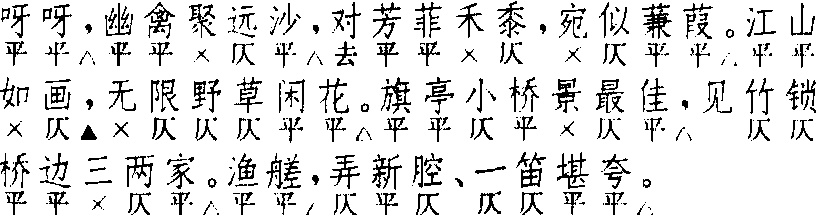 呀呀，幽禽聚远沙，对芳菲禾黍，宛似蒹葭。江山
平平△平平×仄平△去平平×仄×仄平平△平平
如画，无限野草闲花。旗亭小桥景最佳，见竹锁
×仄▲×仄仄仄平平△平平仄平×仄平△仄仄
桥边三两家。渔艖，弄新腔、一笛堪夸。
平平×仄平△平平△仄平仄仄仄平平△